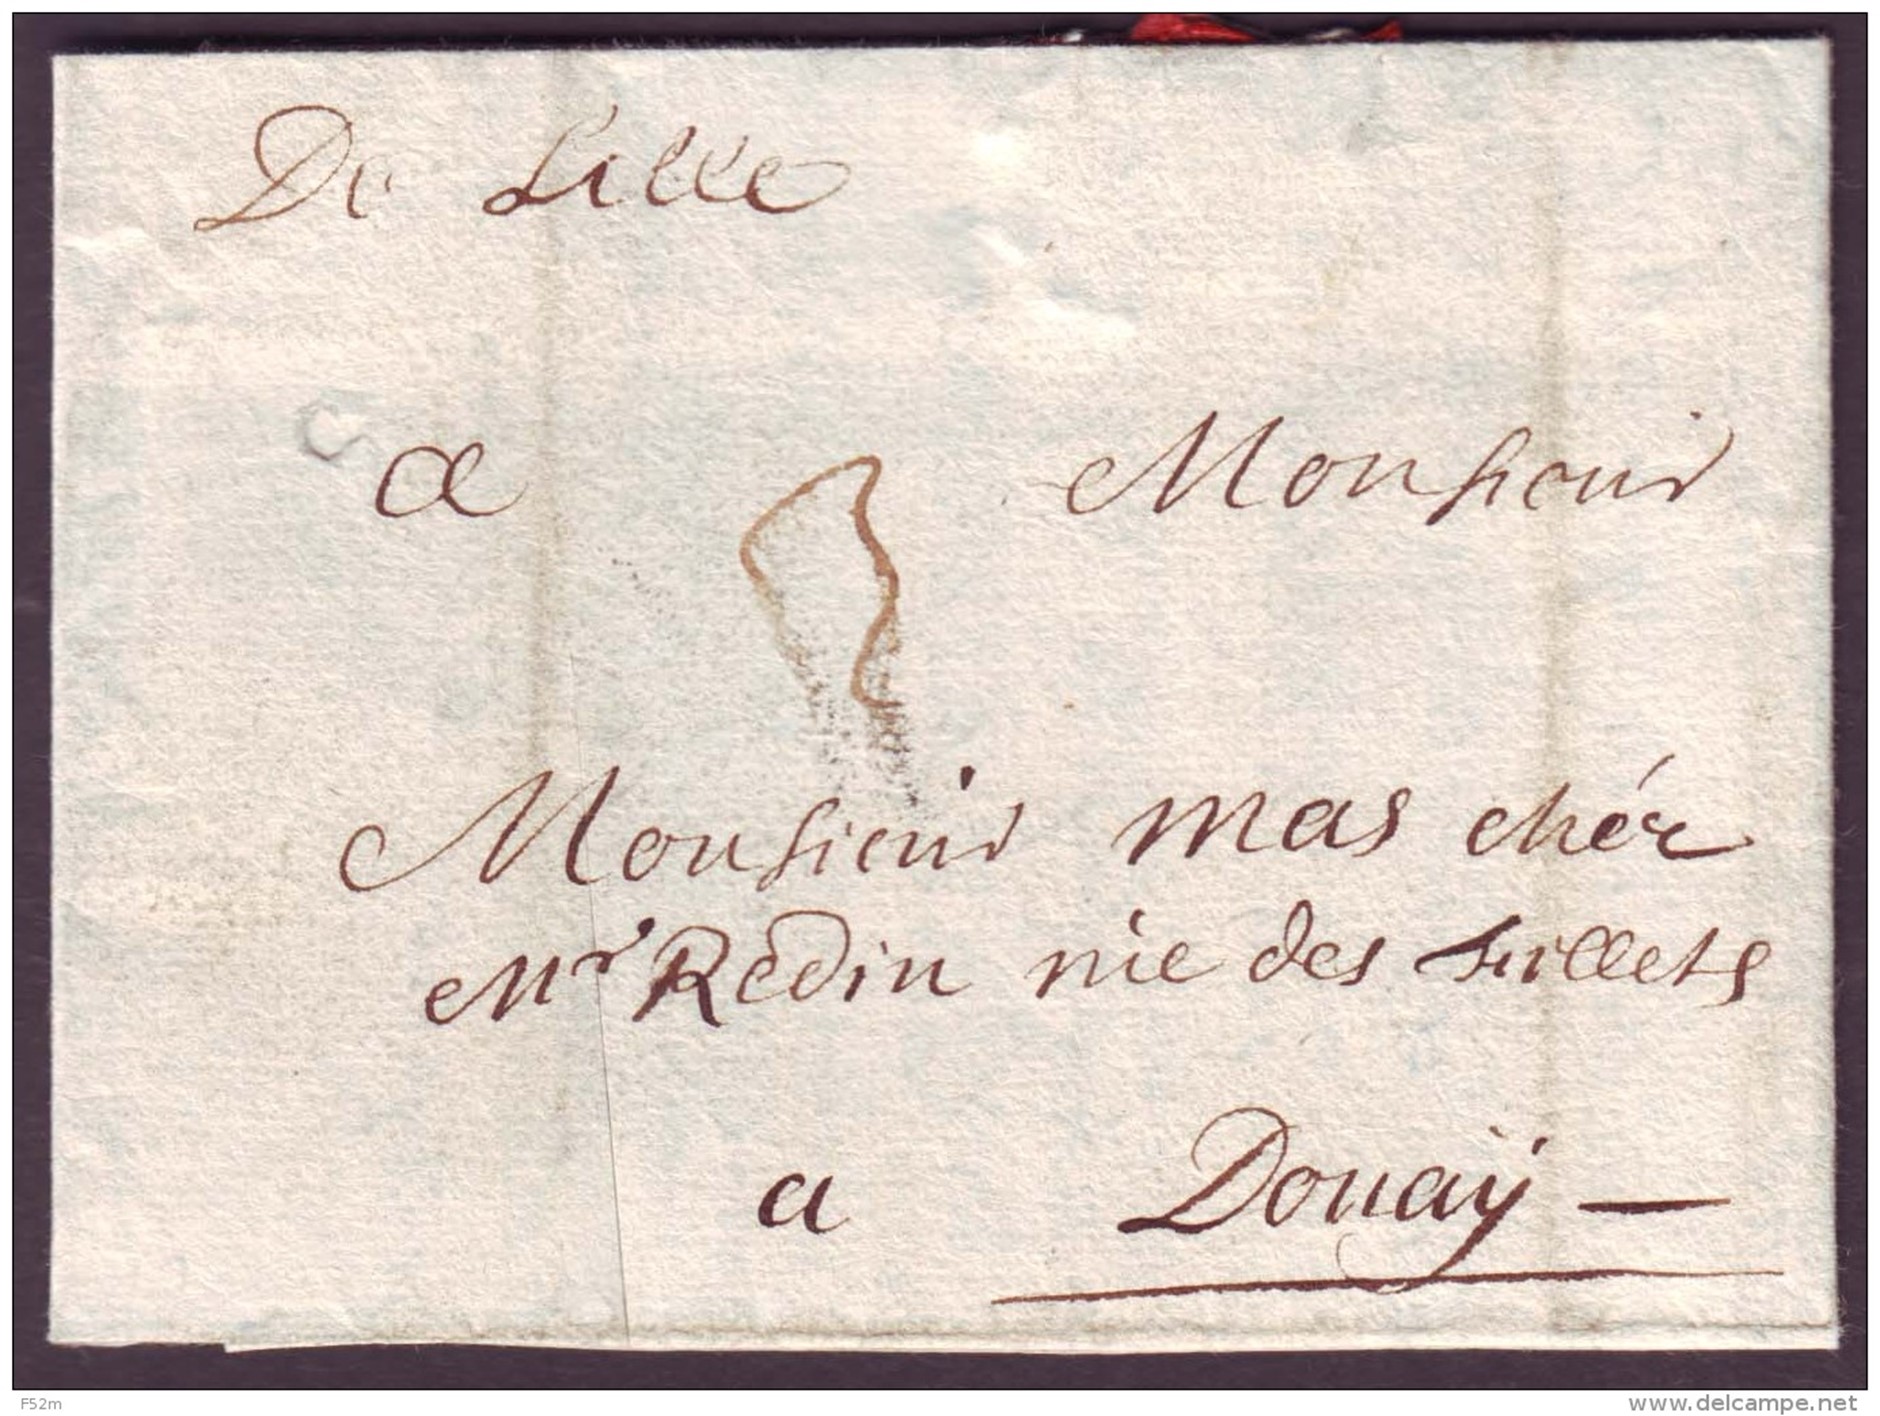 De Lille
a Monsieur
3
Monsieur mas chér
Mr Redin rue des huillets
a Douaÿ —
F52m
www.delcampe.net